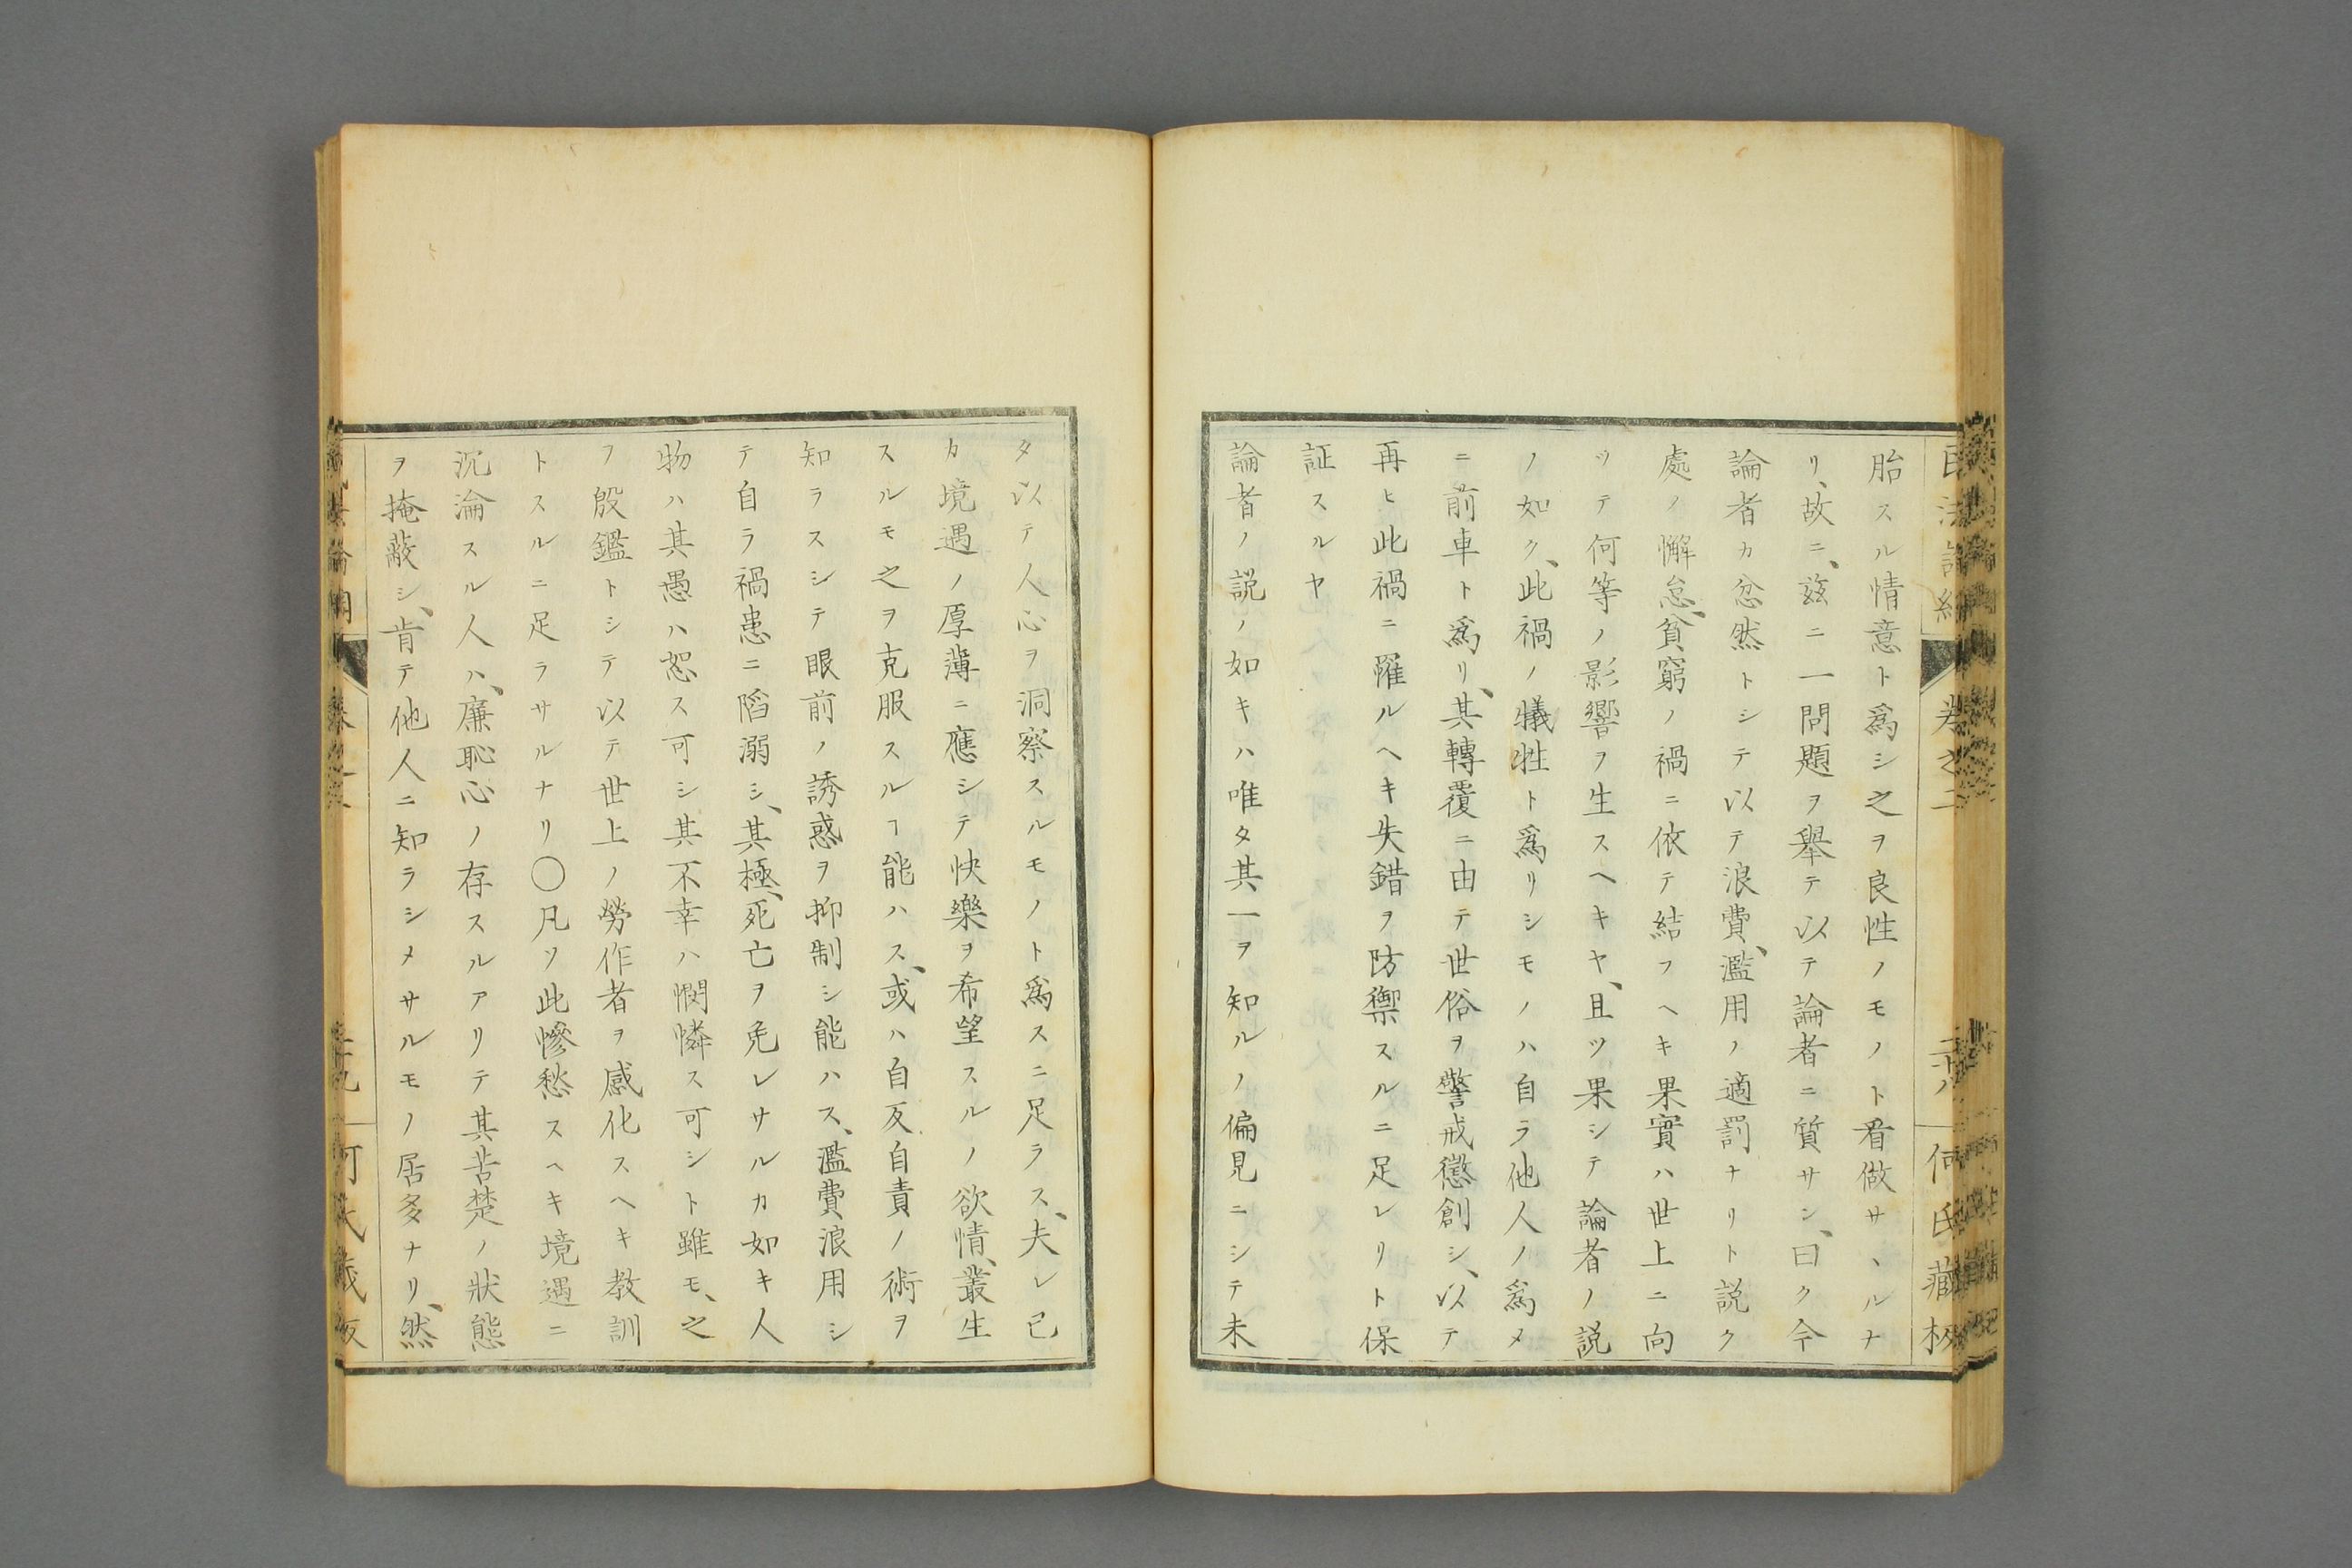 胎スル情意ト爲シ之ヲ良性ノモノト看做サヽルナ
リ、故ニ、玆ニ一問題ヲ舉テ以テ論者ニ質サン、曰ク今
論者カ忿然トシテ以テ浪費、濫用ノ適罰ナリト説ク
處ノ懈怠、貧窮ノ禍ニ依テ結フヘキ果實ハ世上ニ向
ツテ何等ノ影響ヲ生スヘキヤ、且ツ果シテ論者ノ説
ノ如ク、此禍ノ犠牲ト爲リシモノハ自ラ他人ノ爲メ
ニ前車ト爲リ、其轉覆ニ由テ世俗ヲ警戒懲創シ、以テ
再ヒ此禍ニ罹ルヘキ失錯ヲ防禦スルニ足レリト保
証スルヤ
論者ノ説ノ如キハ唯タ其一ヲ知ルノ偏見ニシテ未
卷之二
二十八
何氏藏板
タ以テ人心ヲ洞察スルモノト爲スニ足ラス、夫レ已
カ境遇ノ厚薄ニ應シテ快樂ヲ希望スルノ欲情、叢生
スルモ之ヲ克服スルヿ能ハス、或ハ自反自責ノ術ヲ
知ラスシテ眼前ノ誘惑ヲ抑制シ能ハス、濫費浪用シ
テ自ラ禍患ニ陷溺シ、其極、死亡ヲ免レサルカ如キ人
物ハ其愚ハ恕ス可シ其不幸ハ憫憐ス可シト雖モ、之
ヲ殷鑑トシテ以テ世上ノ勞作者ヲ感化スヘキ教訓
トスルニ足ラサルナリ〇凡ソ此慘愁スヘキ境遇ニ
沉淪スル人ハ、廉恥心ノ存スルアリテ其苦楚ノ狀態
ヲ掩蔽シ、肯テ他人ニ知ラシメサルモノ居多ナリ、然